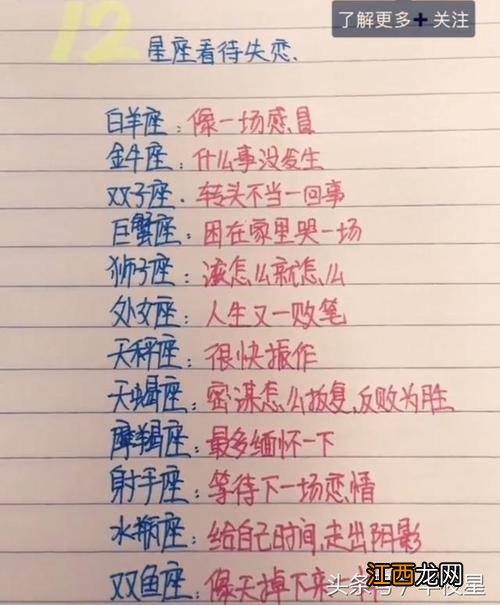 了解更多+ 关注
12
星座看待失恋.
白羊座：像一场感冒
金牛座：什么事没发生
双子座.转头不当一回事
巨蟹座：困在家里哭一场
狮子座：该怎么就怎么
处女座：人生又一败笔
天秤座：很快振作
天蝎座：密谋怎么报复,反败为胜
摩羯座：最多缅怀一下
射手座：等待下一场恋情
水瓶座：给自己时间,走出阴影
双鱼座：像天掉下来
头条号/半夜星
江西龙网